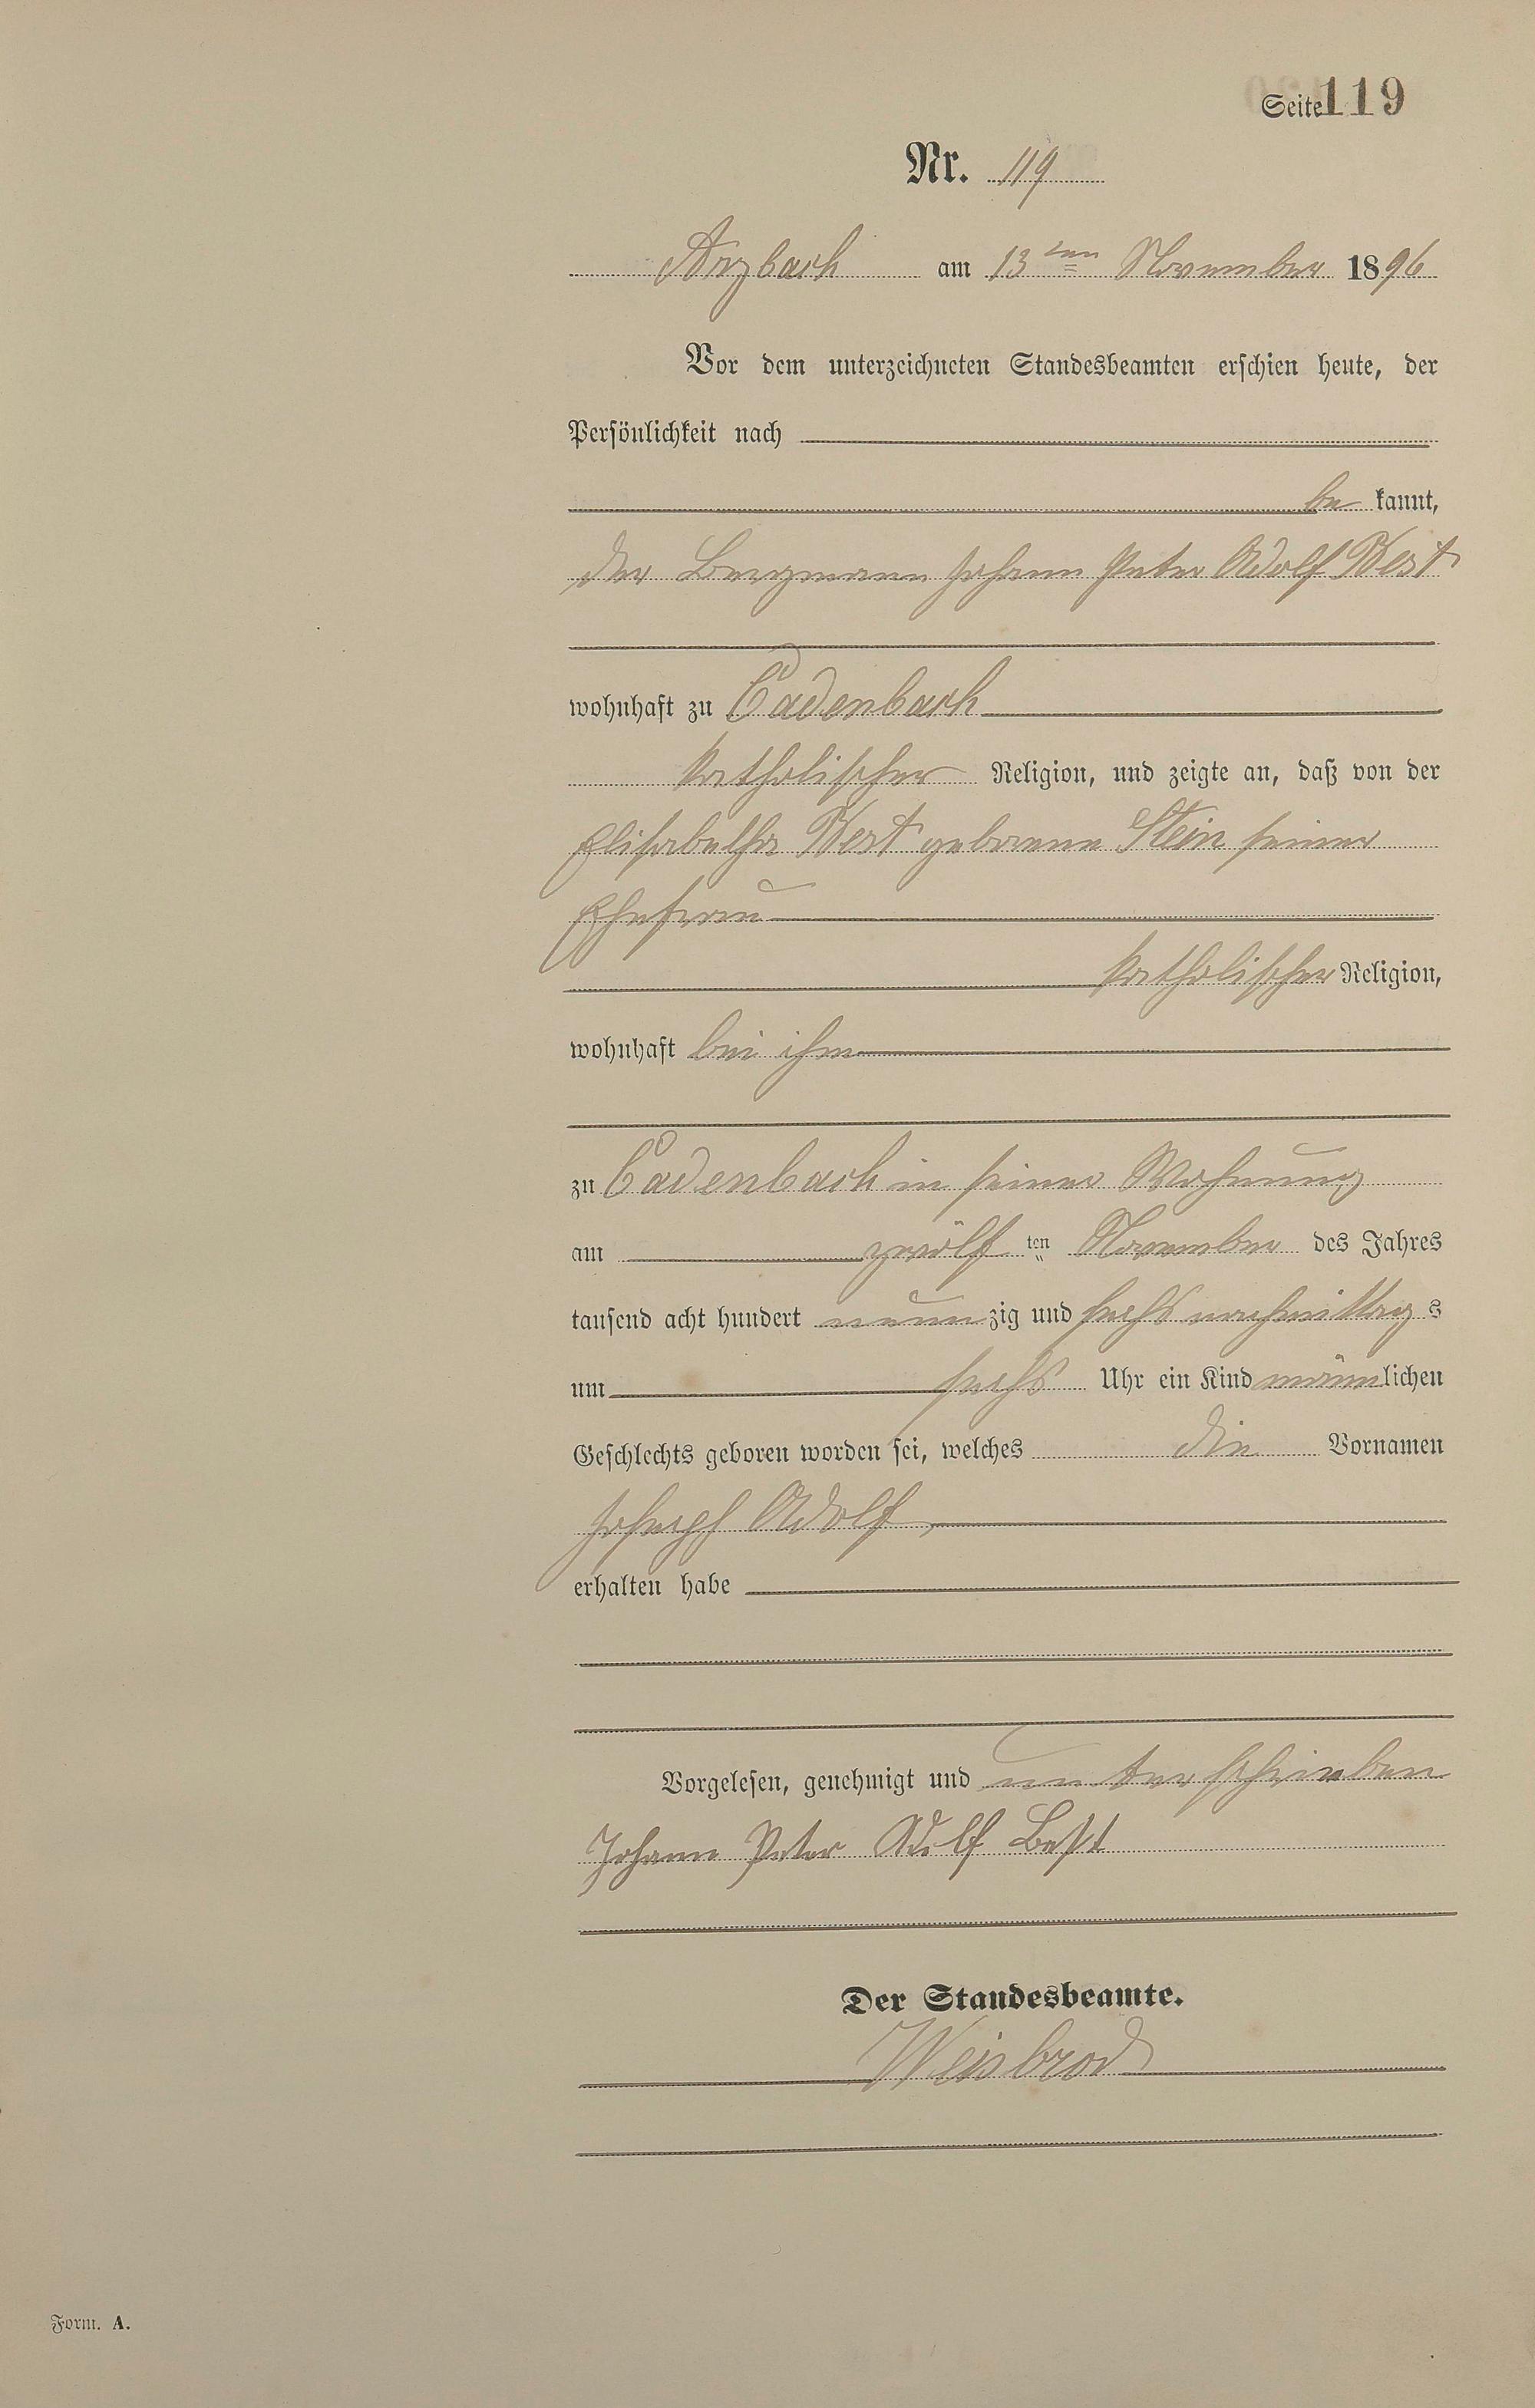 Seite 119
Nr. 119
Arzbach am 13ten November 1896
Vor dem unterzeichneten Standesbeamten erschien heute, der
Persönlichkeit nach
be kannt,
der Bergmann Johann Peter Adolf Best
wohnhaft zu Cadenbach
katholischer Religion, und zeigte an, daß von der
Elisabetha Best geborene Stein seiner
Ehefrau
katholischer Religion,
wohnhaft bei ihm
zu Cadenbach in seiner Wohnung
am zwölf ten November des Jahres
tausend acht hundert neunzig und sechs nachmittags
um sechs Uhr ein Kind männlichen
Geschlechts geboren worden sei, welches die Vornamen
Joseph Adolf,
erhalten habe
Vorgelesen, genehmigt und unterschrieben
Johann Peter Adolf Best
Der Standesbeamte.
Weisbrod
Form. A.